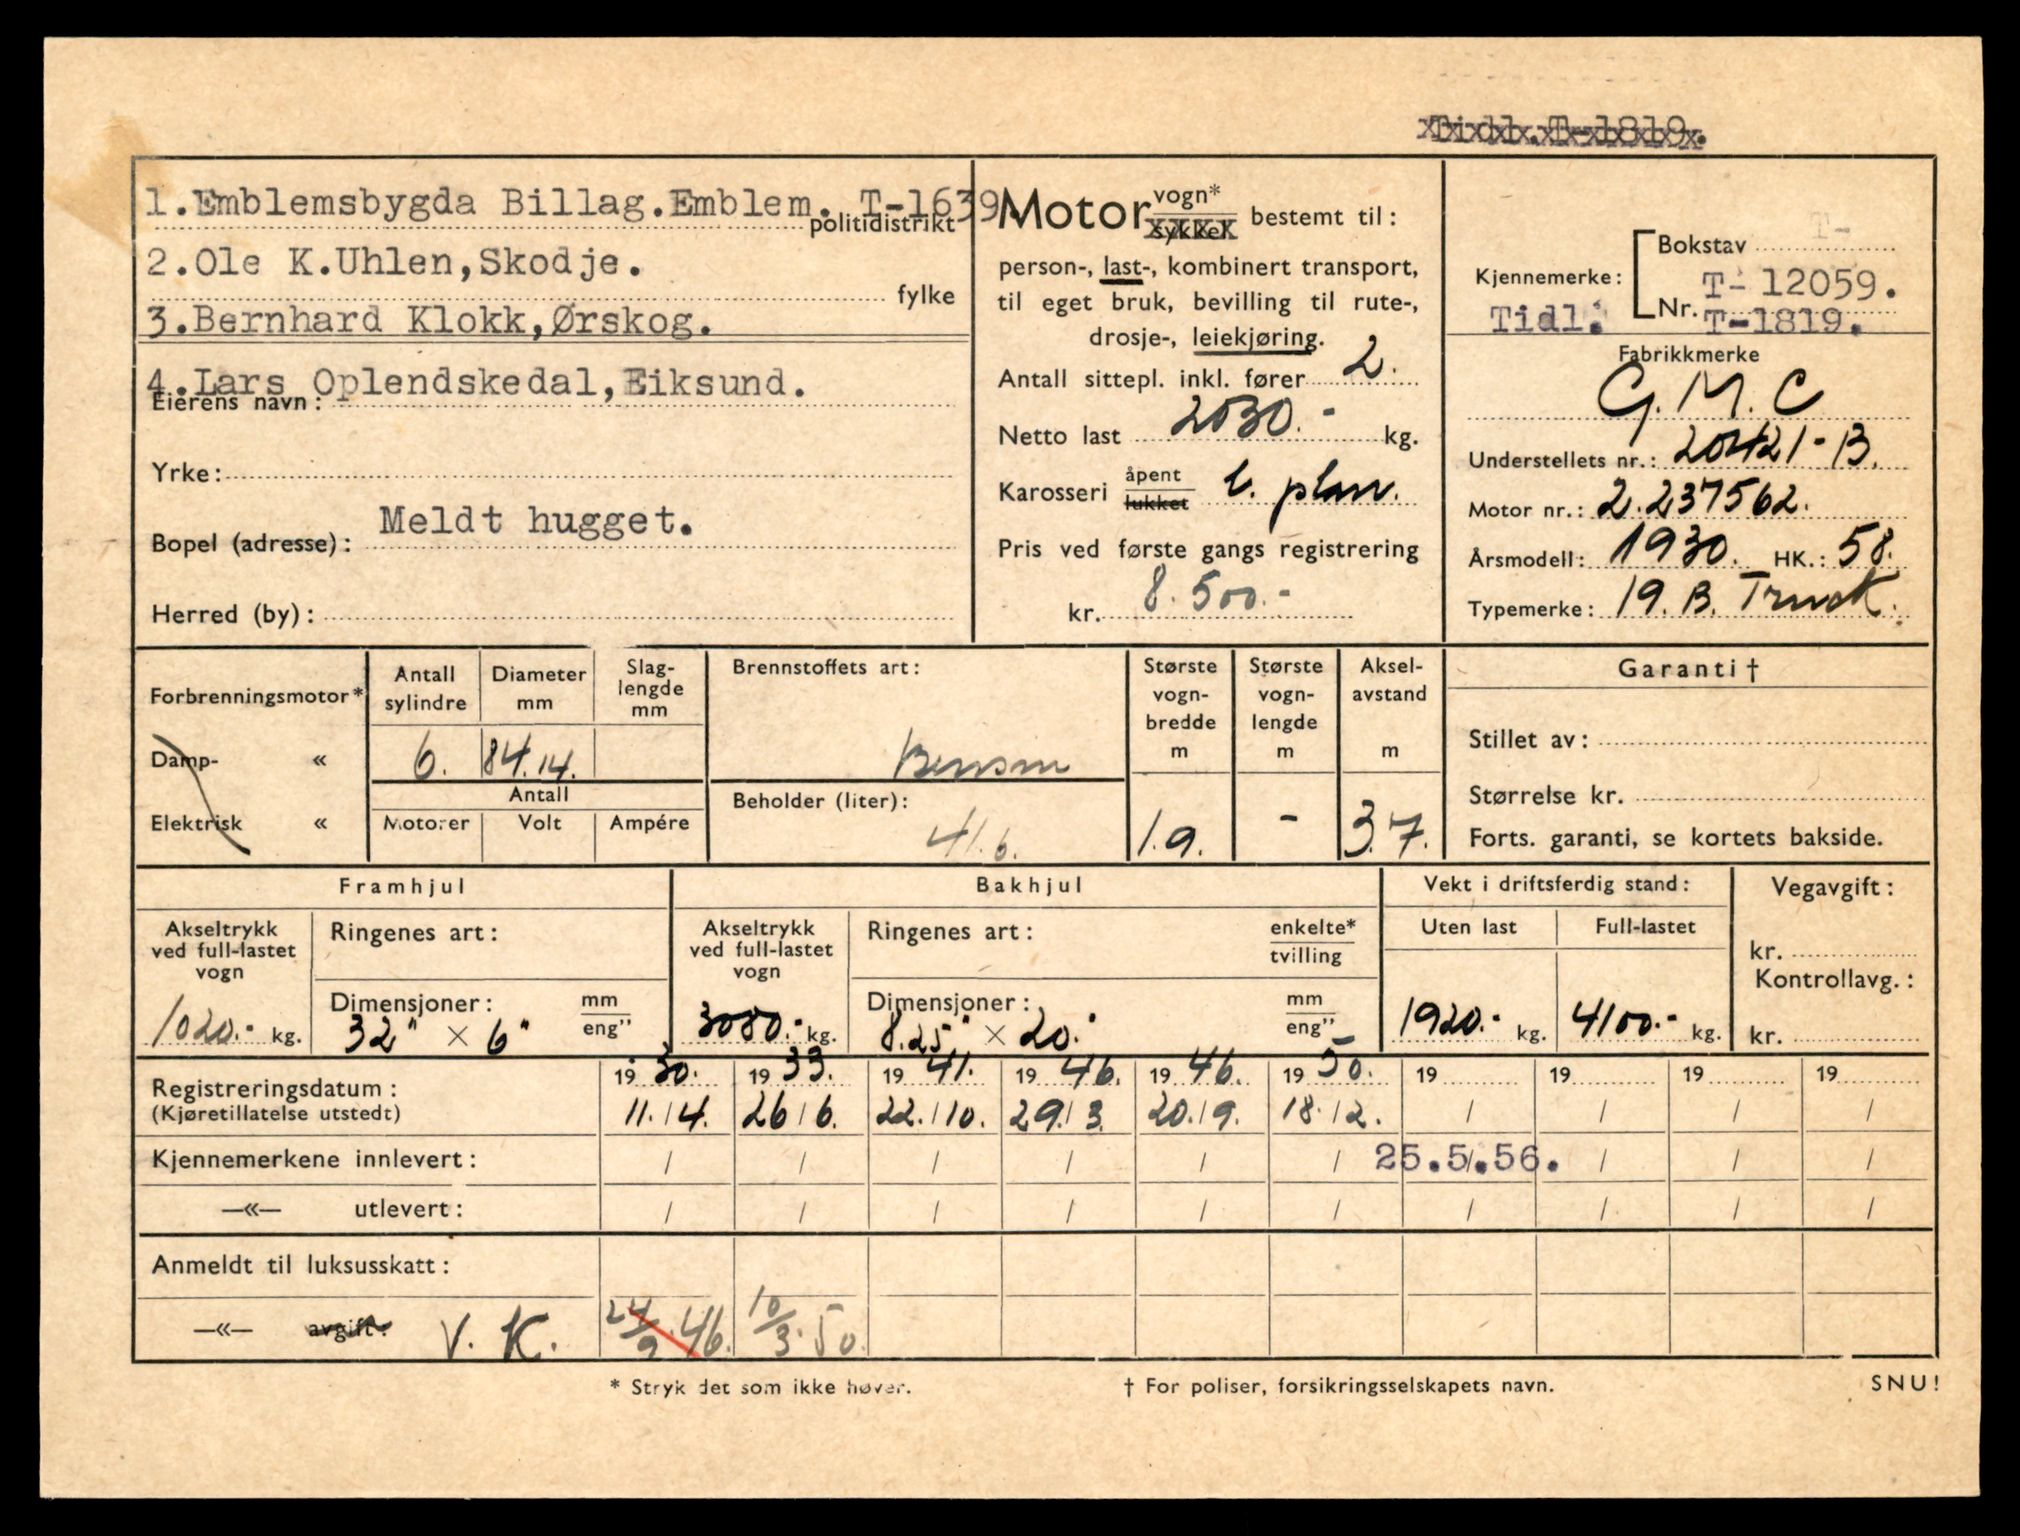 Tidl. T-1819.
1.Emblemsbygda Billag.Emblem. T-1639.
politidistrikt
2.Ole K.Uhlen,Skodje.
fylke
3.Bernhard Klokk,Ørskog.
4.Lars Oplendskedal,Eiksund.
Eierens navn:
Yrke:
Meldt hugget.
Bopel (adresse):
Herred (by):
Motor vogn* sykkel bestemt til:
person-, last-, kombinert transport,
til eget bruk, bevilling til rute-,
drosje-, leiekjøring.
Antall sittepl. inkl. fører 2.
Netto last 2030.- kg.
Karosseri åpent lukket l. plan.
Pris ved første gangs registrering
kr. 8.500.-
T-
Bokstav
Kjennemerke: T-12059.
Nr.
Tidl: T-1819.
Fabrikkmerke
G.M.C
Understellets nr.: 20421-B.
Motor nr.: 2.237562.
Årsmodell: 1930. HK.: 58.
Typemerke: 19.B. Truck.
Forbrenningsmotor*
Damp- «
Elektrisk «
Antall sylindre
6.
Diameter mm
84.14.
Slag-lengde mm
Antall
Motorer Volt Ampére
Brennstoffets art:
Bensin
Beholder (liter):
41.6.
Største vogn-bredde m
1.9.
Største vogn-lengde m
-
Aksel-avstand m
3.7.
Garanti †
Stillet av:
Størrelse kr.
Forts. garanti, se kortets bakside.
Framhjul
Akseltrykk ved full-lastet vogn
1020.- kg.
Ringenes art:
Dimensjoner: mm eng"
32" × 6"
Bakhjul
Akseltrykk ved full-lastet vogn
3080.- kg.
Ringenes art: enkelte* tvilling
Dimensjoner: mm eng"
8.25" × 20."
Vekt i driftsferdig stand:
Uten last Full-lastet
1920.- kg. 4100.- kg.
Vegavgift:
kr.
Kontrollavg.:
kr.
Registreringsdatum: 19 30. 19 33. 19 41. 19 46. 19 46. 19 50. 19 19 19 19
(Kjøretillatelse utstedt) 11./4. 26/6. 22./10. 29./3. 20./9. 18./2. / / / /
Kjennemerkene innlevert: / / / / / / 25.5.56. / / /
—«— utlevert: / / / / / / / / / /
Anmeldt til luksusskatt:
—«— avgift: V. K. 24/9.46. 10/3.50.
* Stryk det som ikke høver.
† For poliser, forsikringsselskapets navn.
SNU!